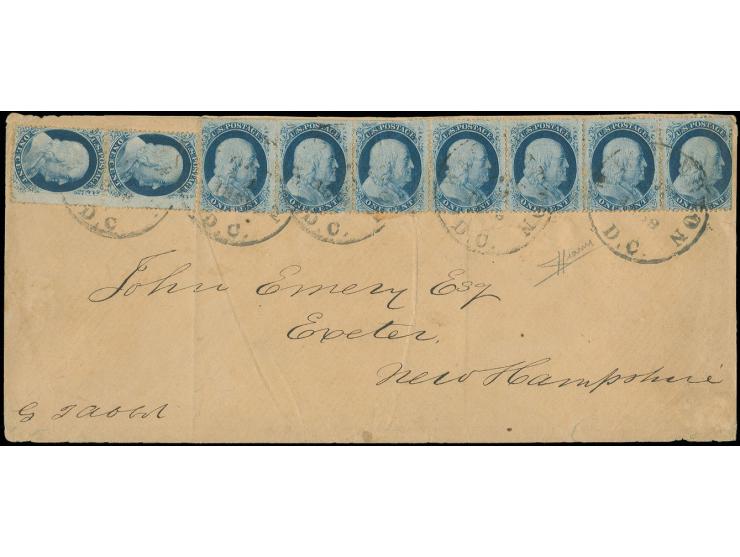 U.S. POSTAGE U.S. POSTAGE U.S. POSTAGE U.S. POSTAGE U.S. POSTAGE U.S. POSTAGE U.S. POSTAGE U.S. POSTAGE U.S. POSTAGE
ONE CENT ONE CENT ONE CENT ONE CENT ONE CENT ONE CENT ONE CENT ONE CENT ONE CENT
D.C. D.C. D.C. D.C. D.C.
John Emery Esq
Exeter,
New Hampshire